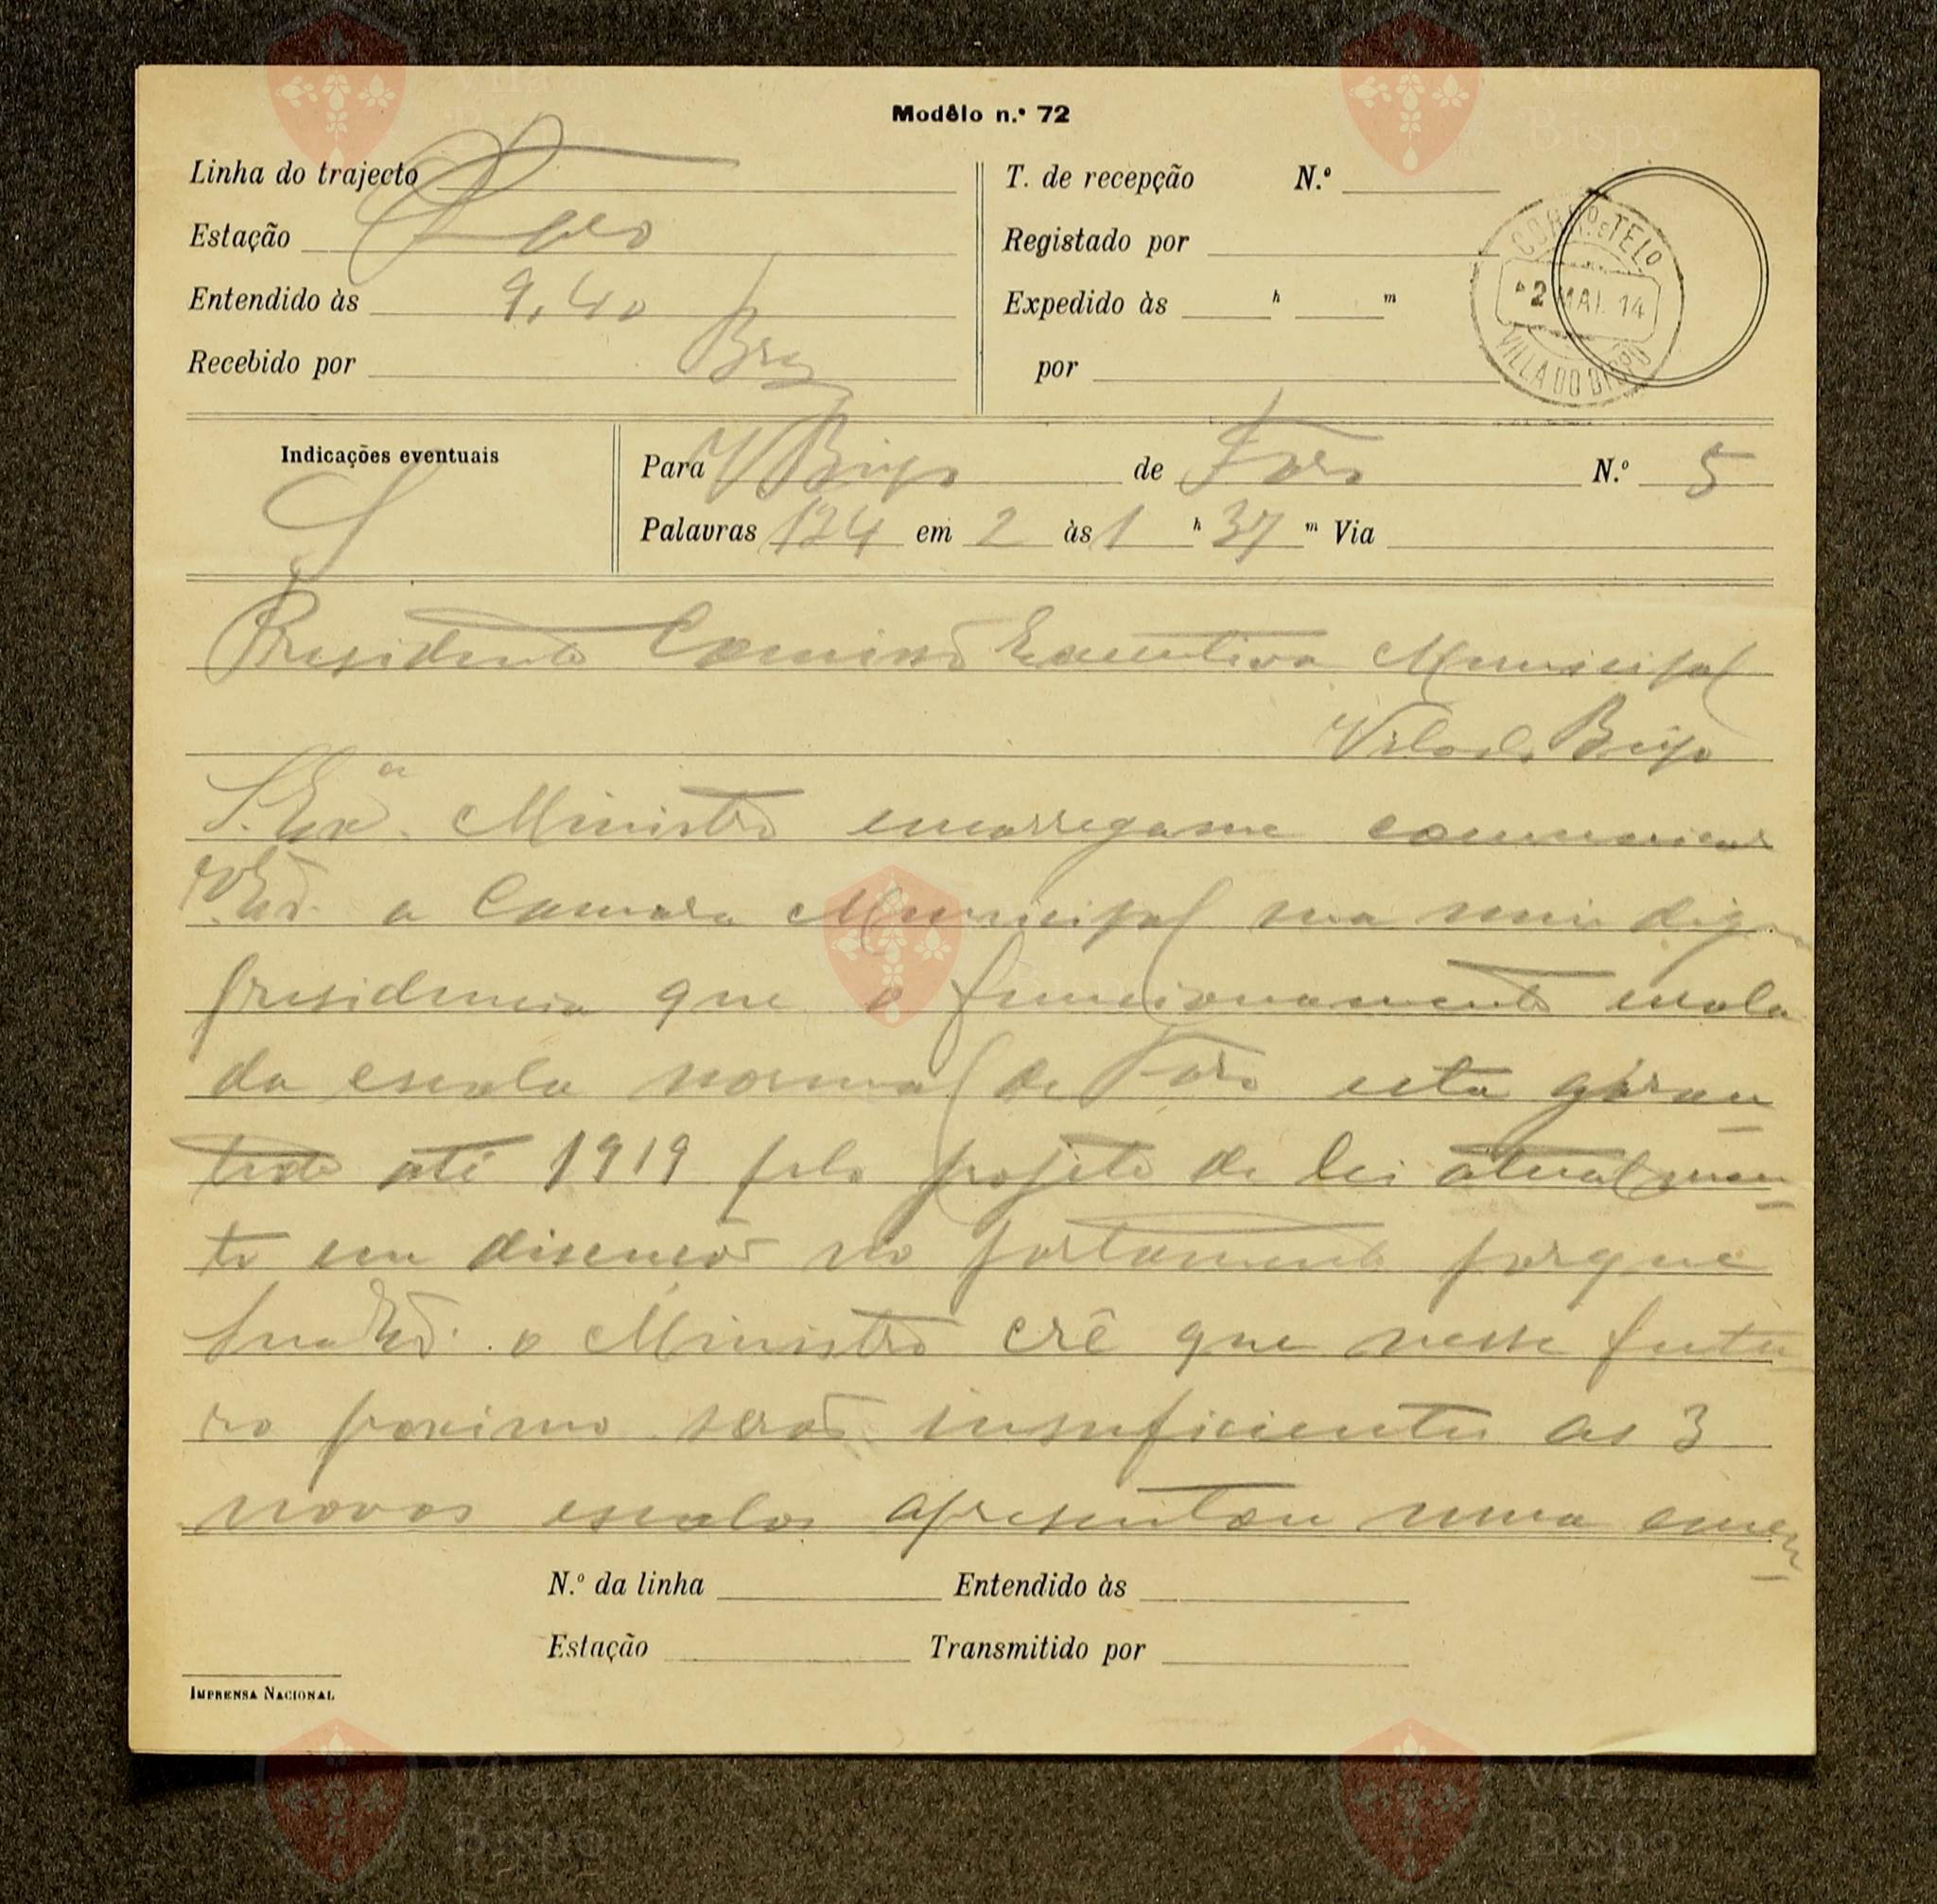 Modêlo n.º 72
Linha do trajecto
Estação Lagos
Entendido às 9,40
Recebido por Braz
T. de recepção N.º
Registado por
Expedido às h m
por
CORRº. E TELº
2 MAI. 14
VILLA DO BISPO
Indicações eventuais
S
Para V Bispo de Faro N.º 5
Palavras 124 em 2 às 1 h 37 m Via
Presidente Comissão Executiva Municipal
Vila do Bispo
S. Exa. Ministro encarregame comunicar
V. Exa. a Camara Municipal sua mui dig
presidencia que o funcionamento escola
da escola normal de Faro esta garan
tido até 1919 pelo projeto de lei atualmen
te em discussão no parlamento porque
sua Exa. o Ministro crê que nesse futu
ro proximo serão insuficientes as 3
novas escolas apresentou uma emen
N.º da linha Entendido às
Estação Transmitido por
IMPRENSA NACIONAL
Vila do
Bispo